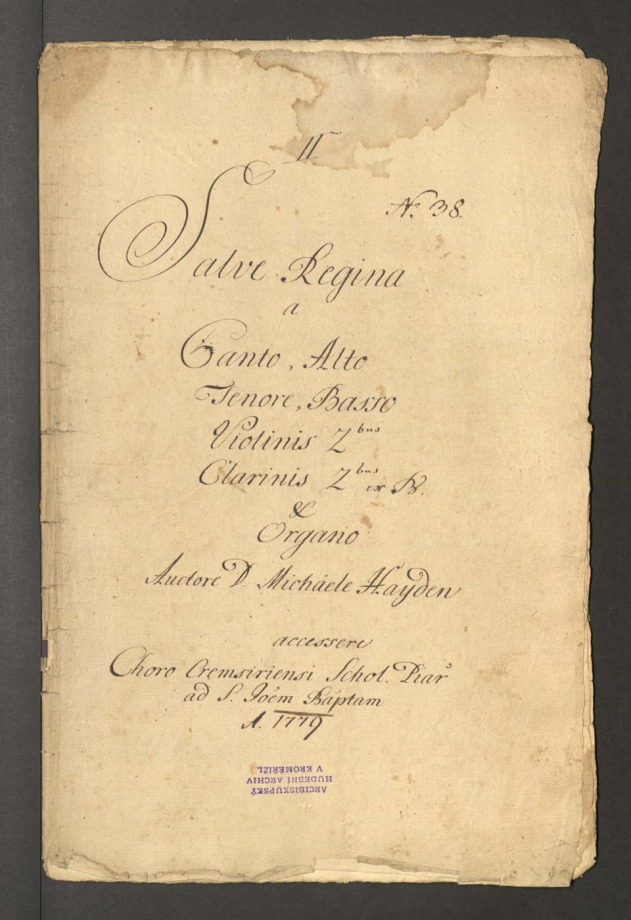 II
№ 38.
Salve Regina
a
Canto, Alto
Tenore, Basso
Violinis 2bus
Clarinis 2bus ex B.
&
Organo
Auctore D Michäele Hayden
accessere
Choro Cremsiriensi Schol. Piar
ad S. Joem Baptam
A. 1779
ARCIBISKUPSKÝ
HUDEBNÍ ARCHIV
V KROMĚŘÍŽI.